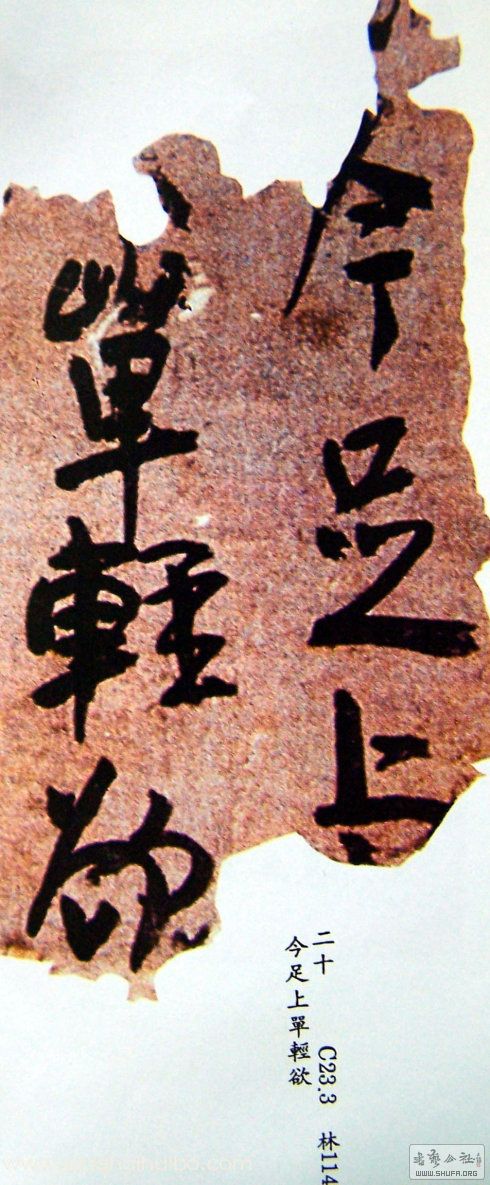 今足上
單輕欲
二十 C23.3 林114
今足上單輕欲
書藝公社
WWW.SHUFA.ORG